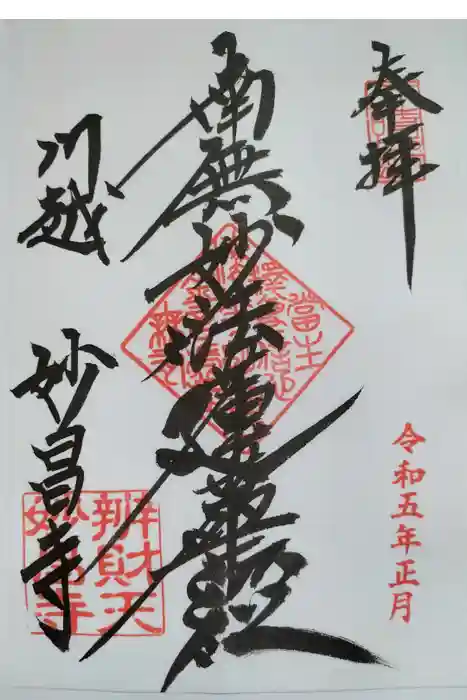 奉拝
令和五年正月
南無妙法蓮華経
川越
妙昌寺
辨財天
妙昌寺